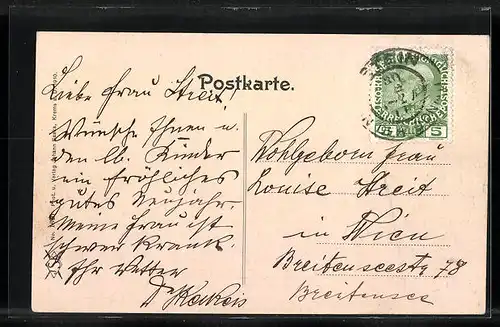 Postkarte.
Liebe Frau Streit,
Wünsche Ihnen u.
den lb. Kinder
ein fröhliches
gutes Neujahr.
Meine Frau ist
schwer krank
Ihr Vetter
Dr
Wohlgeboren Frau
Louise Streit
in Wien
Breitenseestg 78
Breitensee
STEIN
5